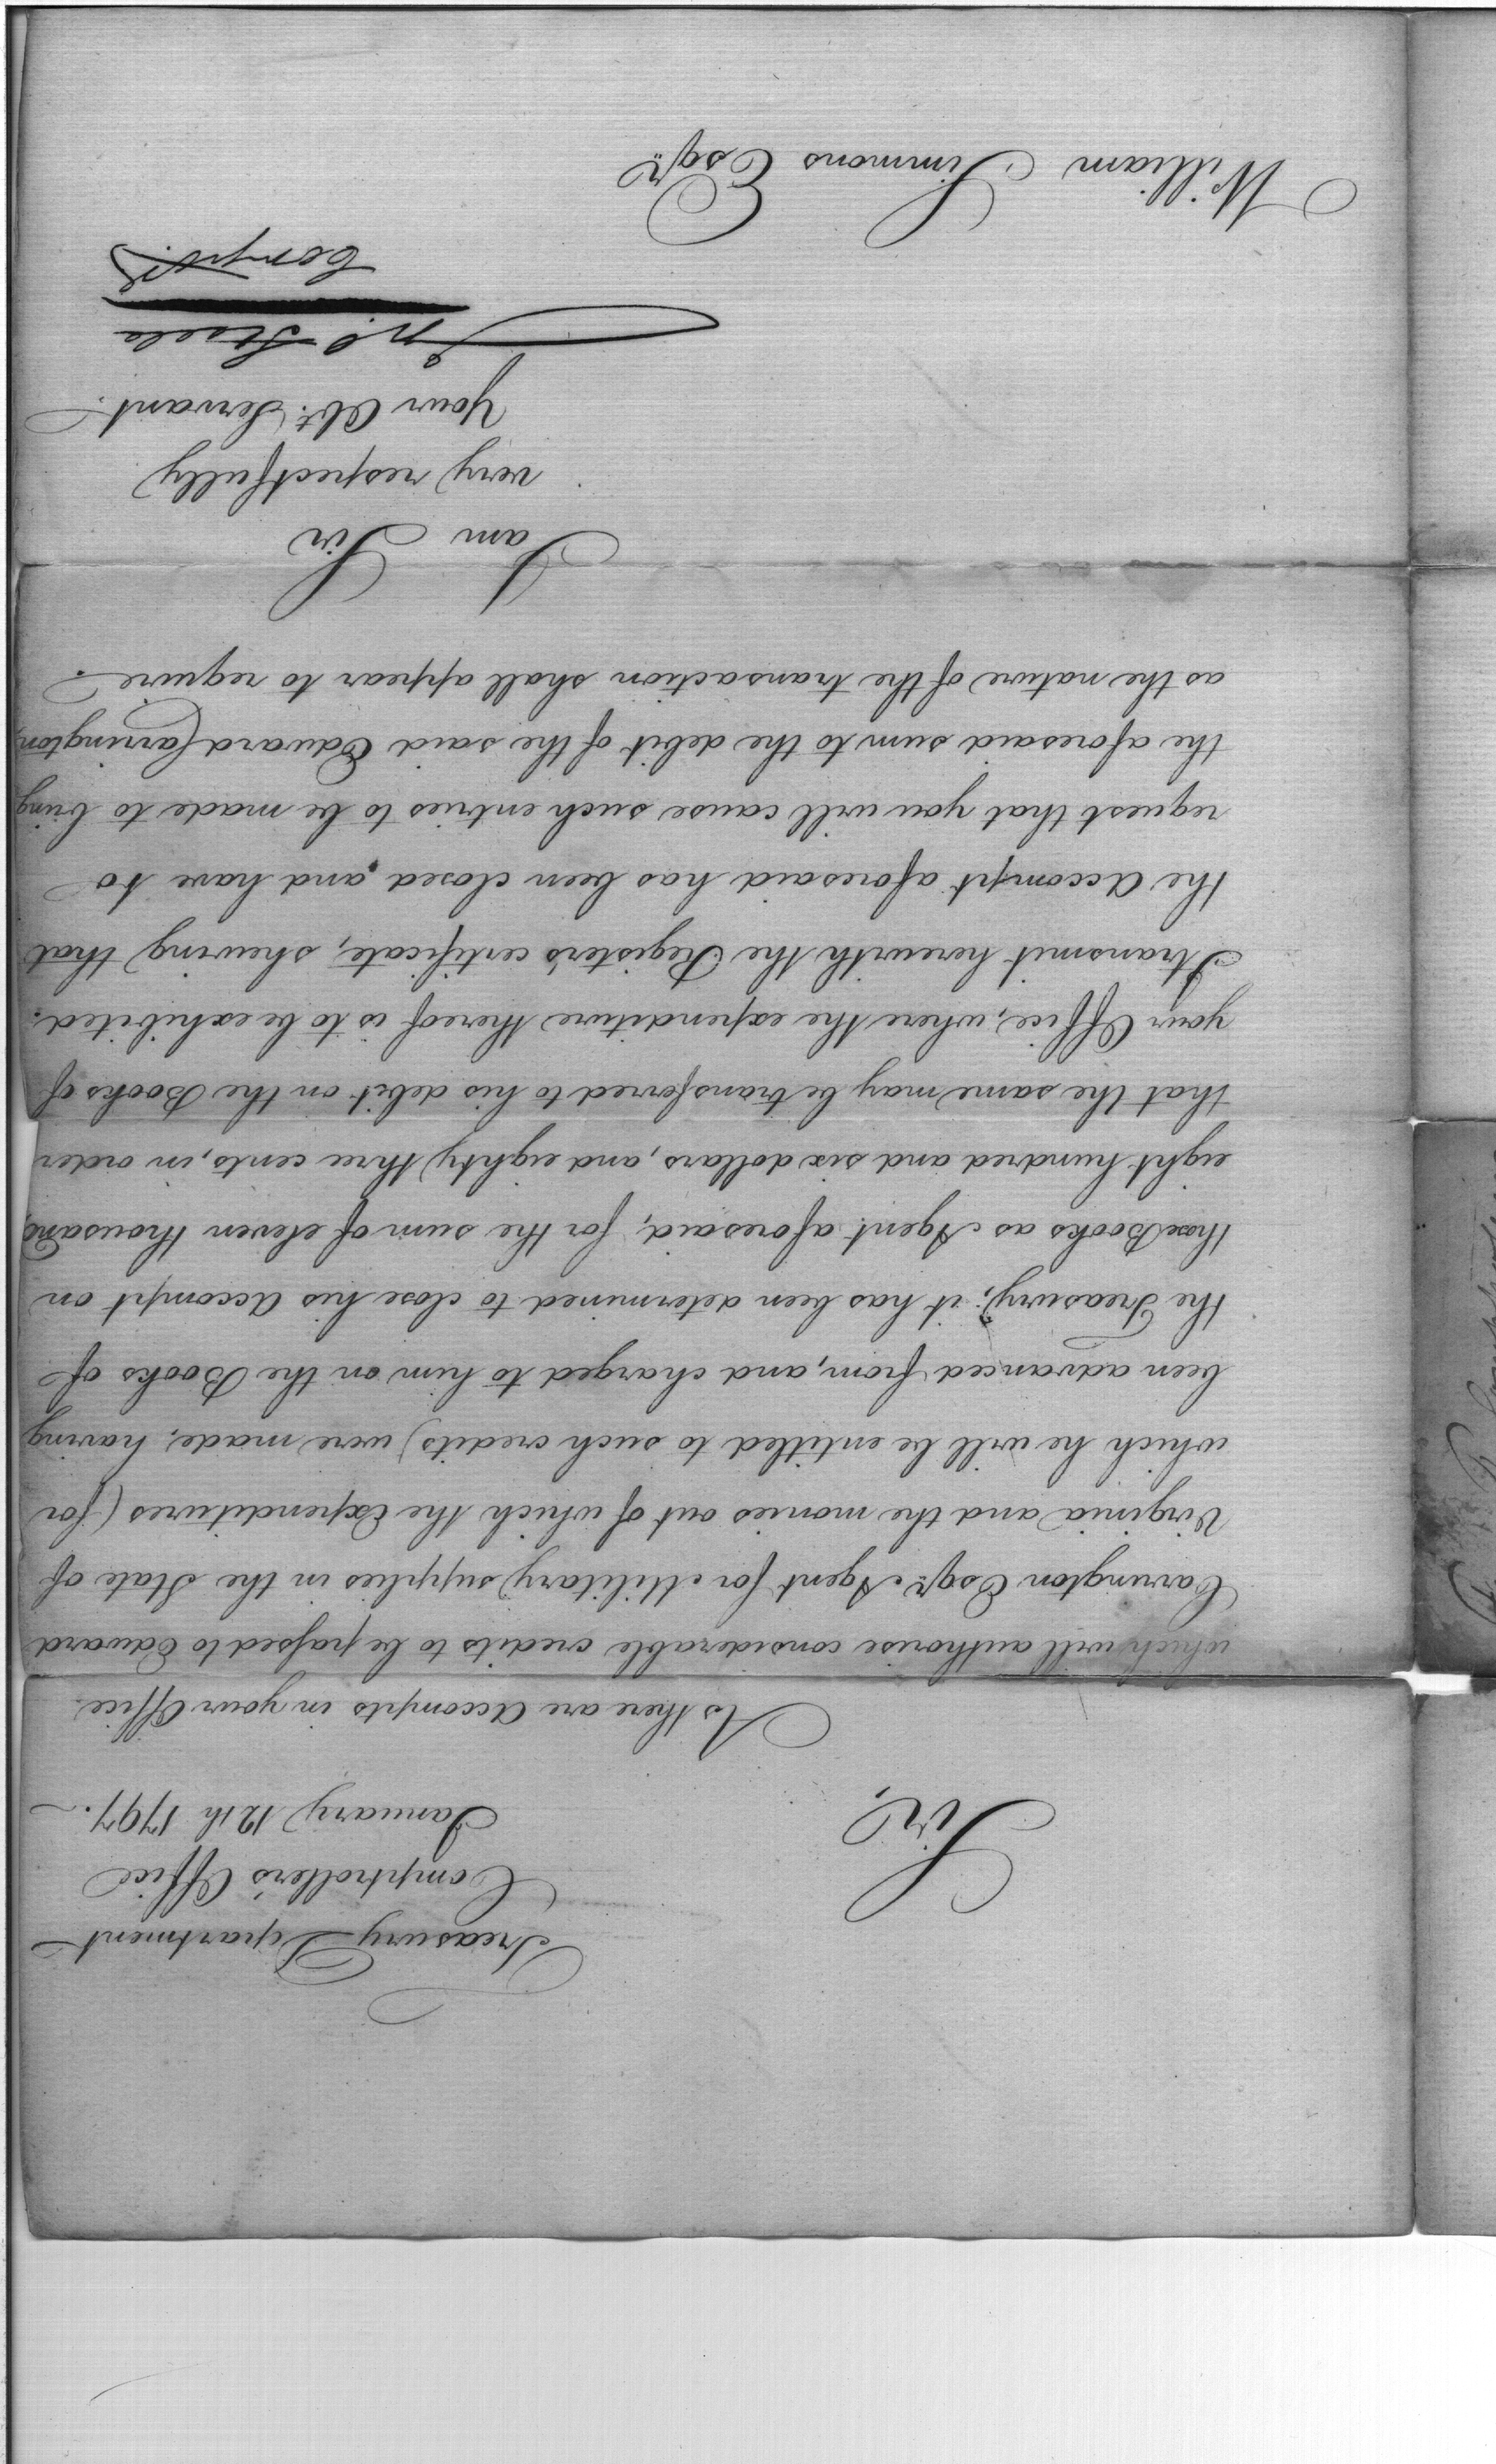 Treasury Department
Comptroller's Office
January 12th 1797.
Sir,
As there are Accompts in your Office
which will authorise considerable credits to be passed to Edward
Carrington Esqr. Agent for Military supplies in the State of
Virginia and the monies out of which the Expenditures (for
which he will be entitled to such credits) were made, having
been advanced from, and charged to him on the Books of
the Treasury; it has been determined to close his Accompt on
those Books as Agent aforesaid, for the sum of eleven thousand
eight hundred and six dollars, and eighty three cents, in order
that the same may be transferred to his debit on the Books of
your Office, where the expenditure thereof is to be exhibited.
I transmit herewith the Register's certificate, shewing that
the Accompt aforesaid has been closed, and have to
request that you will cause such entries to be made to bring
the aforesaid sum to the debit of the said Edward Carrington,
as the nature of the transaction shall appear to require.
I am Sir
very respectfully
Your Obt. Servant.
Jno. Steele
Compt.
William Simmons Esqr.